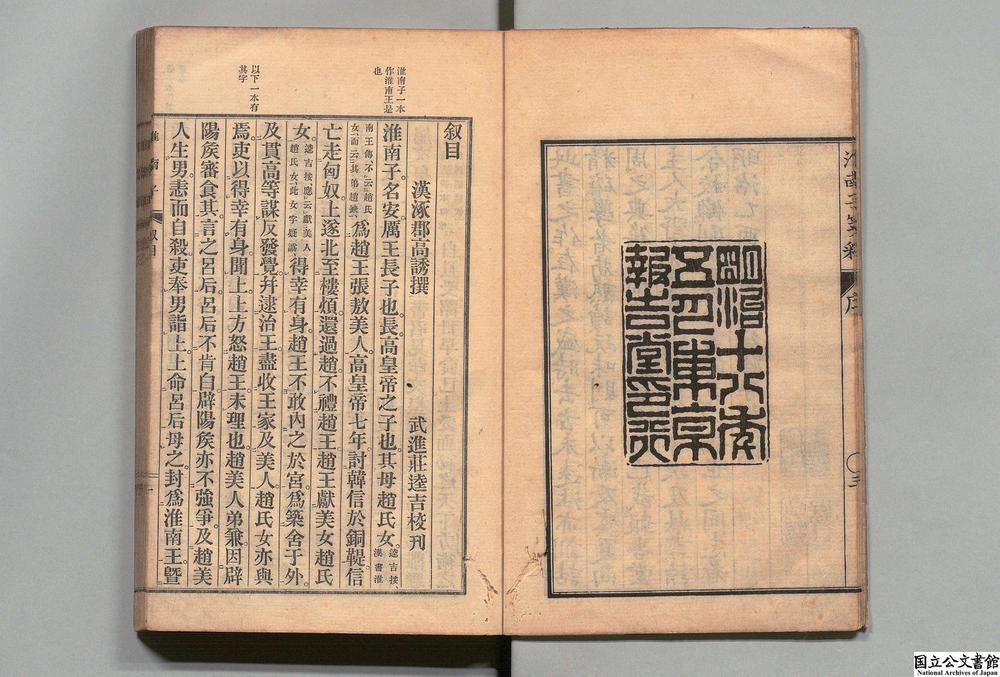 淮南子箋釋 序 〇三
明治十八年
五月東京
報告堂印行
淮南子一本
作淮南王是
也
以下一本有
其字
叙目
漢涿郡高誘撰 武進莊逵吉校刊
淮南子名安厲王長子也長高皇帝之子也其母趙氏女逵吉按漢書淮
南王傳不云趙氏女而云其弟趙兼爲趙王張敖美人高皇帝七年討韓信於銅鞮信
亡走匈奴上遂北至樓煩還過趙不禮趙王趙王獻美女趙氏
女逵吉按應云獻美人趙氏女此女字疑譌得幸有身趙王不敢內之於宮爲築舍于外
及貫高等謀反發覺幷逮治王盡收王家及美人趙氏女亦與
焉吏以得幸有身聞上上方怒趙王未理也趙美人弟兼因辟
陽矦審食其言之呂后呂后不肯白辟陽矦亦不強爭及趙美
人生男恚而自殺吏奉男詣上上命呂后母之封爲淮南王曁
淮南子 叙目
国立公文書館
National Archives of Japan